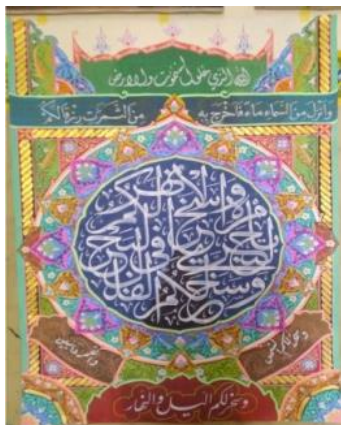 الله الذي خلق السموت والارض
وانزل من السماء ماء فاخرج به من الثمرت رزقا لكم
وسخر لكم الفلك لتجري في البحر بامره وسخر لكم الانهر
وسخر لكم الشمس
والقمر دائبين
وسخر لكم اليل والنهار